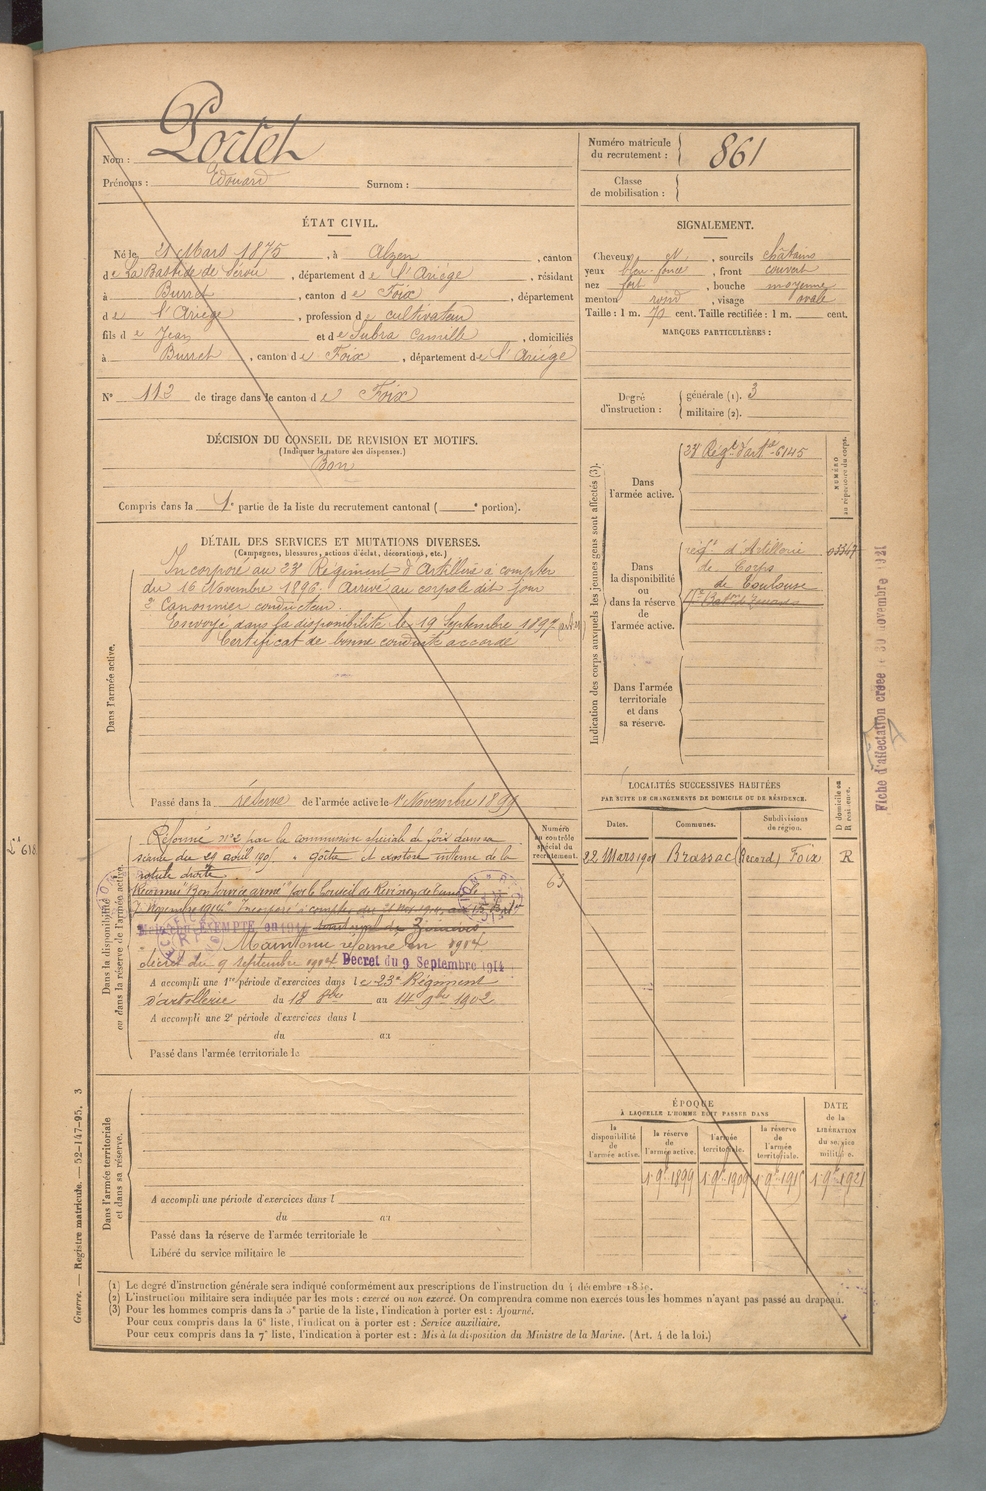 Nom : Portet
Prénoms : Edouard Surnom :
Numéro matricule du recrutement : 861
Classe de mobilisation :
ÉTAT CIVIL.
Né le 21 Mars 1875, à Alzen, canton
de La Bastide de Serou, département de l'Ariège, résidant
à Burret, canton de Foix, département
de l'Ariège, profession de cultivateur
fils de Jean et de Subra Camille, domiciliés
à Burret, canton de Foix, département de l'Ariège
N° 112 de tirage dans le canton de Foix
SIGNALEMENT.
Cheveux et, sourcils châtains
yeux bleu-foncé, front couvert
nez fort, bouche moyenne
menton rond, visage ovale
Taille : 1 m. 71 cent. Taille rectifiée : 1 m. cent.
MARQUES PARTICULIÈRES :
Degré d'instruction : générale (1). 3
militaire (2).
DÉCISION DU CONSEIL DE REVISION ET MOTIFS.
(Indiquer la nature des dispenses.)
Bon
Compris dans la 1e partie de la liste du recrutement cantonal ( e portion).
DÉTAIL DES SERVICES ET MUTATIONS DIVERSES.
(Campagnes, blessures, actions d'éclat, décorations, etc.)
Dans l'armée active.
Incorporé au 23e Régiment d'Artillerie à compter
du 16 Novembre 1896. Arrivé au corps le dit jour
2e Canonnier conducteur.
Envoyé dans la disponibilité le 19 Septembre 1897
Certificat de bonne conduite accordé
Passé dans la réserve de l'armée active le 1er Novembre 1899
Indication des corps auxquels les jeunes gens sont affectés (3).
NUMÉRO au répertoire du corps.
Dans l'armée active.
23e Régt d'artie 6145
Dans la disponibilité ou dans la réserve de l'armée active.
régt d'Artillerie
de Corps
de Toulouse
Dans l'armée territoriale et dans sa réserve.
Fiche d'affectation créée le 30 novembre 1921
Dans la disponibilité ou dans la réserve de l'armée active.
Numéro au contrôle spécial du recrutement.
63
Réformé n°2 par la commission spéciale de foix dans sa
séance du 29 août 1901, goître et exostose interne de la
rotule droite
Reconnu "Bon service armé" par le Conseil de Révision de
7 Novembre 1914 Incorporé à compter du
EXEMPTE
Maintenu réformé en 1914
décret du 9 septembre 1914. Décret du 9 Septembre 1914
A accompli une 1re période d'exercices dans le 23e Régiment
d'artillerie du 18 8bre au 14 9bre 1902
A accompli une 2e période d'exercices dans l
du au
Passé dans l'armée territoriale le
LOCALITÉS SUCCESSIVES HABITÉES
PAR SUITE DE CHANGEMENTS DE DOMICILE OU DE RÉSIDENCE.
Dates. Communes. Subdivisions de région. D domicile ou R résidence.
22 Mars 1901 Brassac (Record) Foix R
Dans l'armée territoriale et dans sa réserve.
A accompli une période d'exercices dans l
du au
Passé dans la réserve de l'armée territoriale le
Libéré du service militaire le
ÉPOQUE
À LAQUELLE L'HOMME DOIT PASSER DANS
la disponibilité de l'armée active. la réserve de l'armée active. l'armée territoriale. la réserve de l'armée territoriale. DATE de la LIBÉRATION du service militaire.
1er 9bre 1899 1er 9bre 1909 1er 9bre 1915 1er 9bre 1921
(1) Le degré d'instruction générale sera indiqué conformément aux prescriptions de l'instruction du 4 décembre
(2) L'instruction militaire sera indiquée par les mots : exercé ou non exercé. On comprendra comme non exercés tous les hommes n'ayant pas passé au drapeau.
(3) Pour les hommes compris dans la 5e partie de la liste, l'indication à porter est : Ajourné.
Pour ceux compris dans la 6e liste, l'indication à porter est : Service auxiliaire.
Pour ceux compris dans la 7e liste, l'indication à porter est : Mis à la disposition du Ministre de la Marine. (Art. 4 de la loi.)
Guerre. — Registre matricule. — 52-147-95. 3